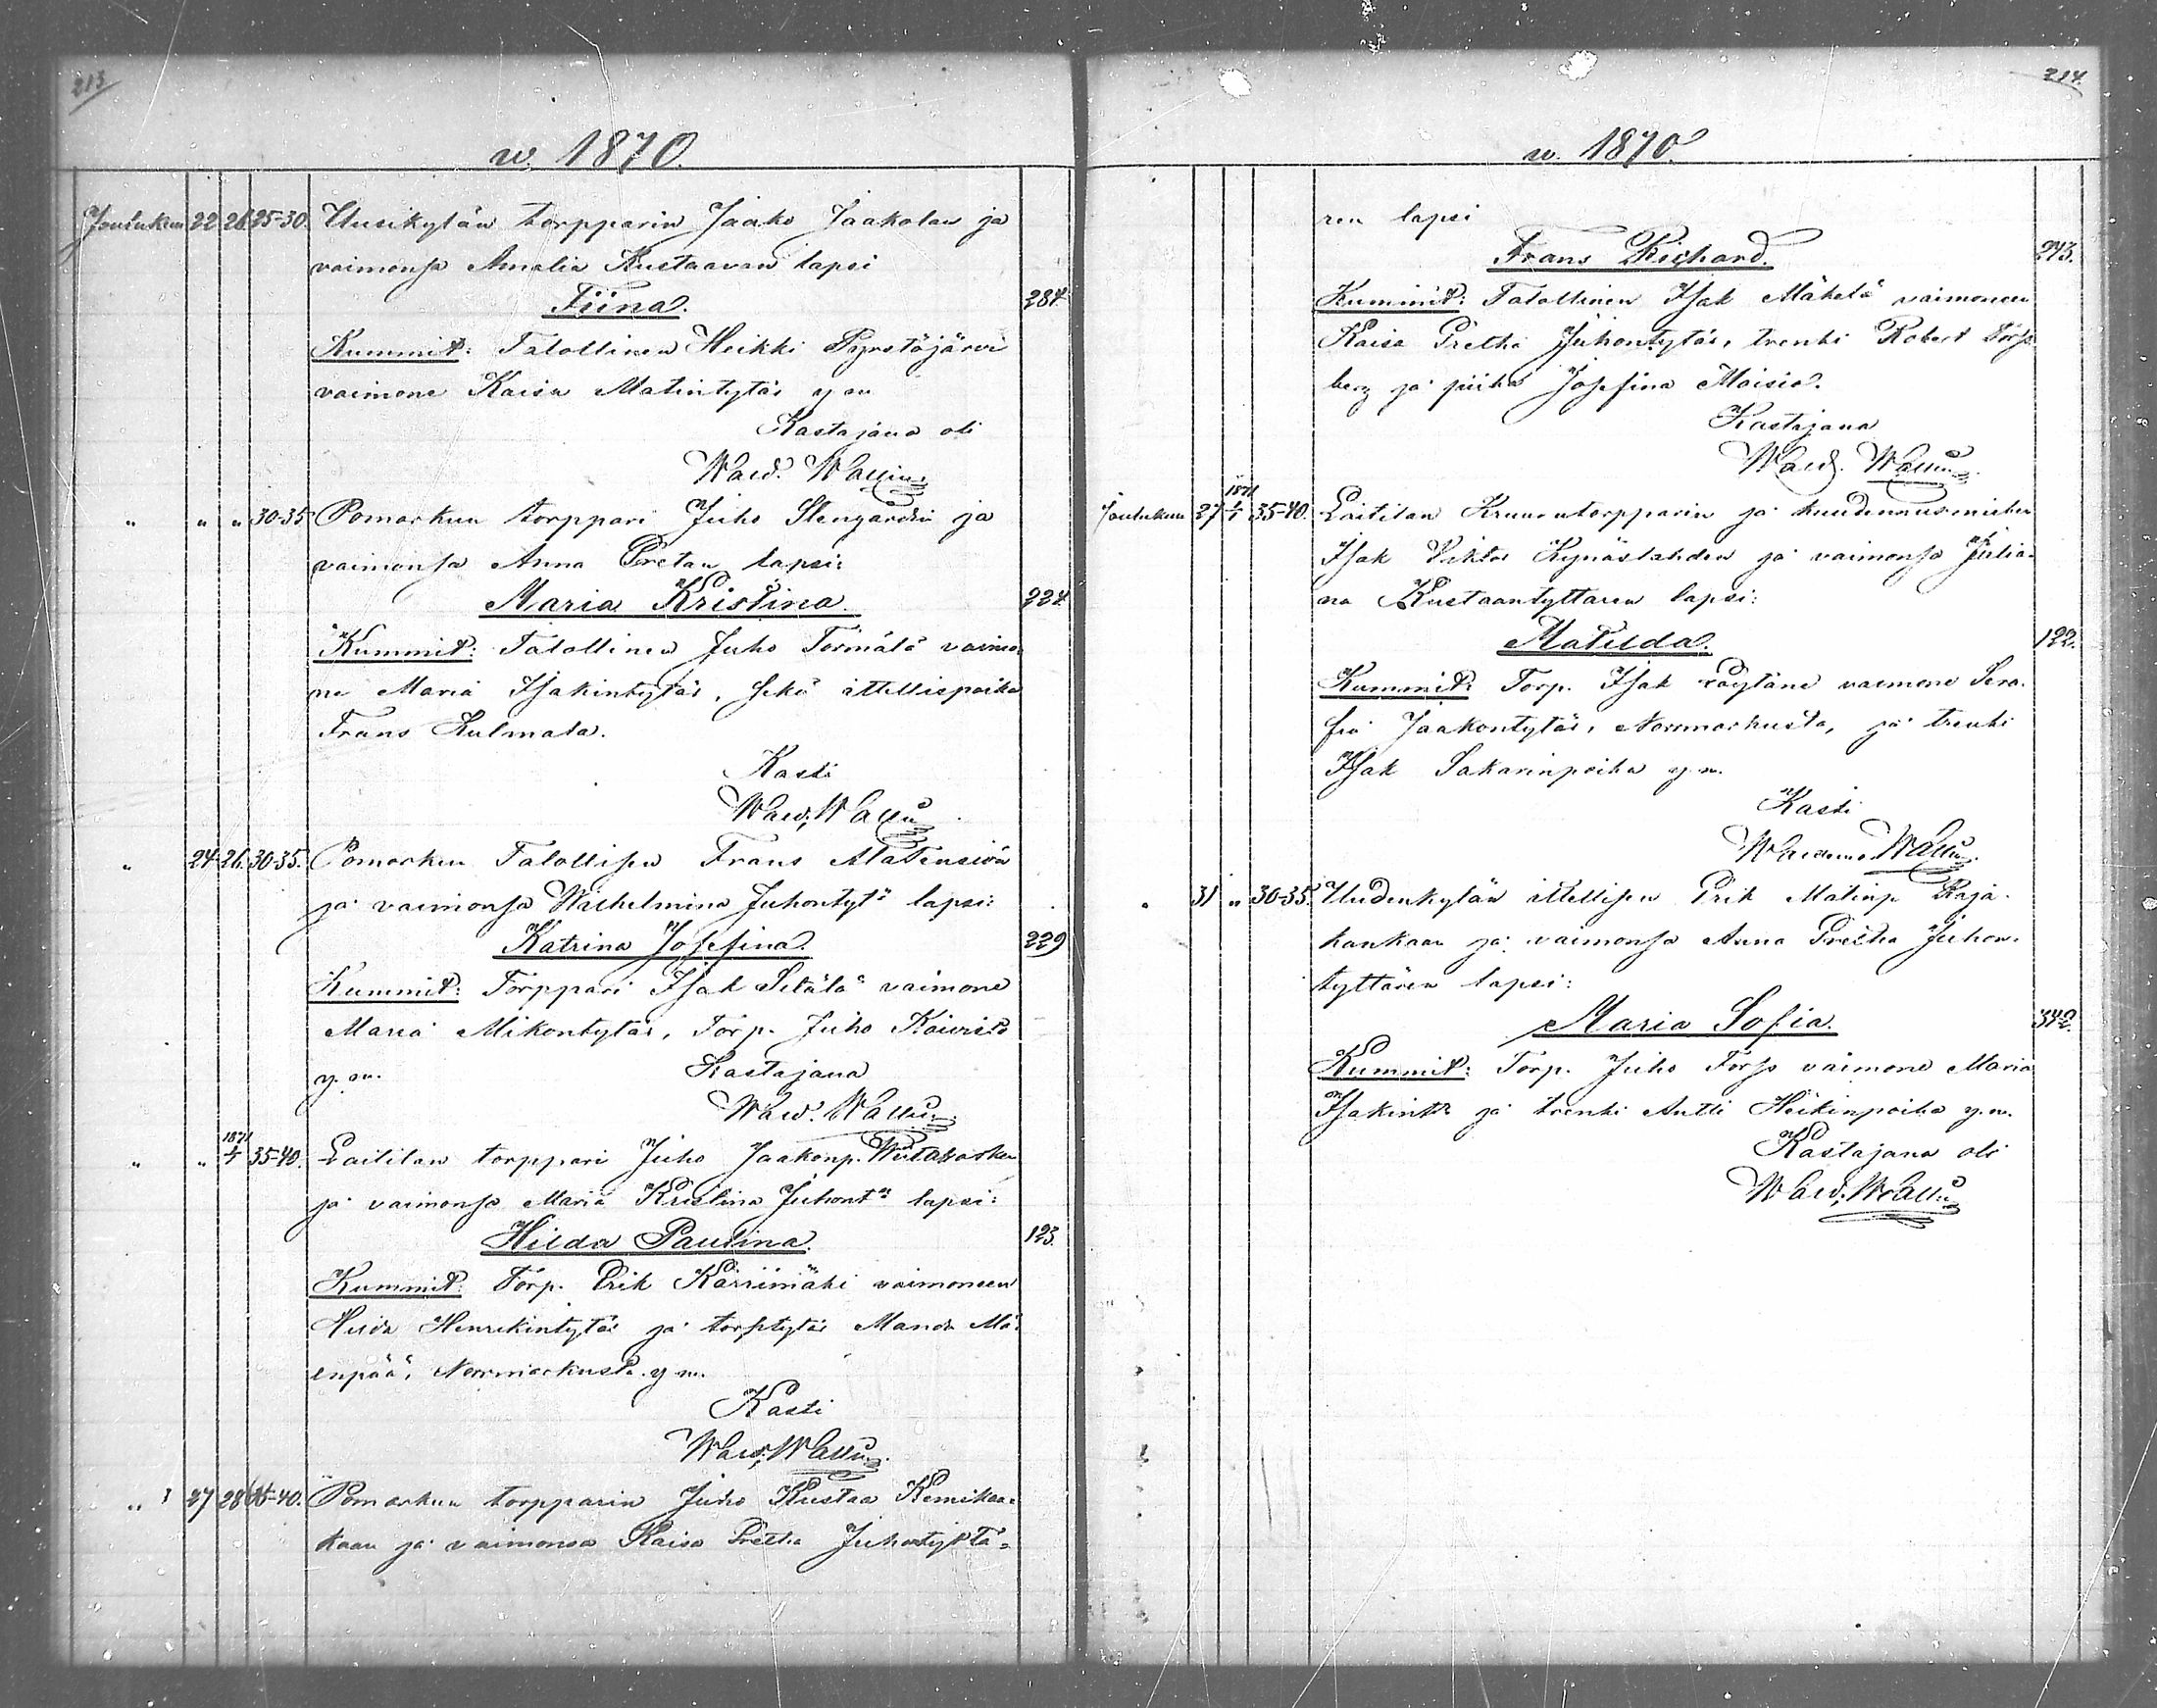 213
w. 1870.
Joulukuu 22 26 25-30. Uusikylän torpparin Jaako Jaakolan ja
vaimonsa Amalia Kustaavan lapsi
Tiina. 284
Kummit: Talollinen Heikki Pyretöjärvi
vaimone Kaisa Matintytär y m
Kastajana oli
Wald. Wallin
" " " 30-35 Pomarkun torppari Juho Stengardin ja
vaimonsa Anna Pretan lapsi:
Maria Kristina. 224
Kummit: Talollinen Juho Törmälä vaimo-
ne Maria Isakintytär, sekä ittellispoika
Frans Kulmala.
Kasti
Wald. Wallin
" 24 26. 30-35. Pomarkun Talollisen Frans Alatensiön
ja vaimonsa Wilhelmina Juhontytä lapsi:
Katrina Josefina. 229
Kummit: Torppari Isak Setälä vaimone
Maria Mikontytär, Torp. Juho Koivisto
y. m. Kastajana
Wald. Wallin
" " 1871 1/1 35-40. Laitilan torppari Juho Jaakonp.
ja vaimonsa Maria Kristina Juhont:r lapsi:
Hilda Paulina. 123.
Kummit: Torp. Erik Karriimäki vaimoneen
Hilda Henrikintytär ja torptytär Manda Mä-
enpää, Normarkusta. y m.
Kasti
Wald. Wallin
" 27 28 -40. Pomarkun torpparin Juho Kustaa Kemikaa-
kaan ja vaimonsa Kaisa Pretha Juhontyttä-
214.
w. 1870.
ren lapsi
Frans Richard. 243.
Kummit: Talollinen Isak Mäkelä vaimoneen
Kaisa Pretha Juhontytär, trenki Robert Fors-
berg ja piika Josefina Moisio.
Kastajana
Wald. Wallin
Joulukuu 27 1871 1/1 35-40. Laitilan Kruununtorpparin ja huudennusmiehen
Isak Viktor Kynäslahden ja vaimonsa Julia-
na Kustaantyttaren lapsi:
Matilda. 122.
Kummit: Torp. Isak Päytäne vaimone Sera-
fia Jaakontytär, Normarkusta, ja trenki
Isak Sakarinpoika y m.
Kasti
Waldemar Wallin
" 31 " 30-35. Uudenkylän ittellisen Erik Matinp Raja-
kankaan ja vaimonsa Anna Pretha Juhon-
tyttären lapsi:
Maria Sofia. 342.
Kummit: Torp. Juho Forss vaimone Maria
Isakintr ja trenki Antti Heikinpoika y. m.
Kastajana oli
Wald. Wallin